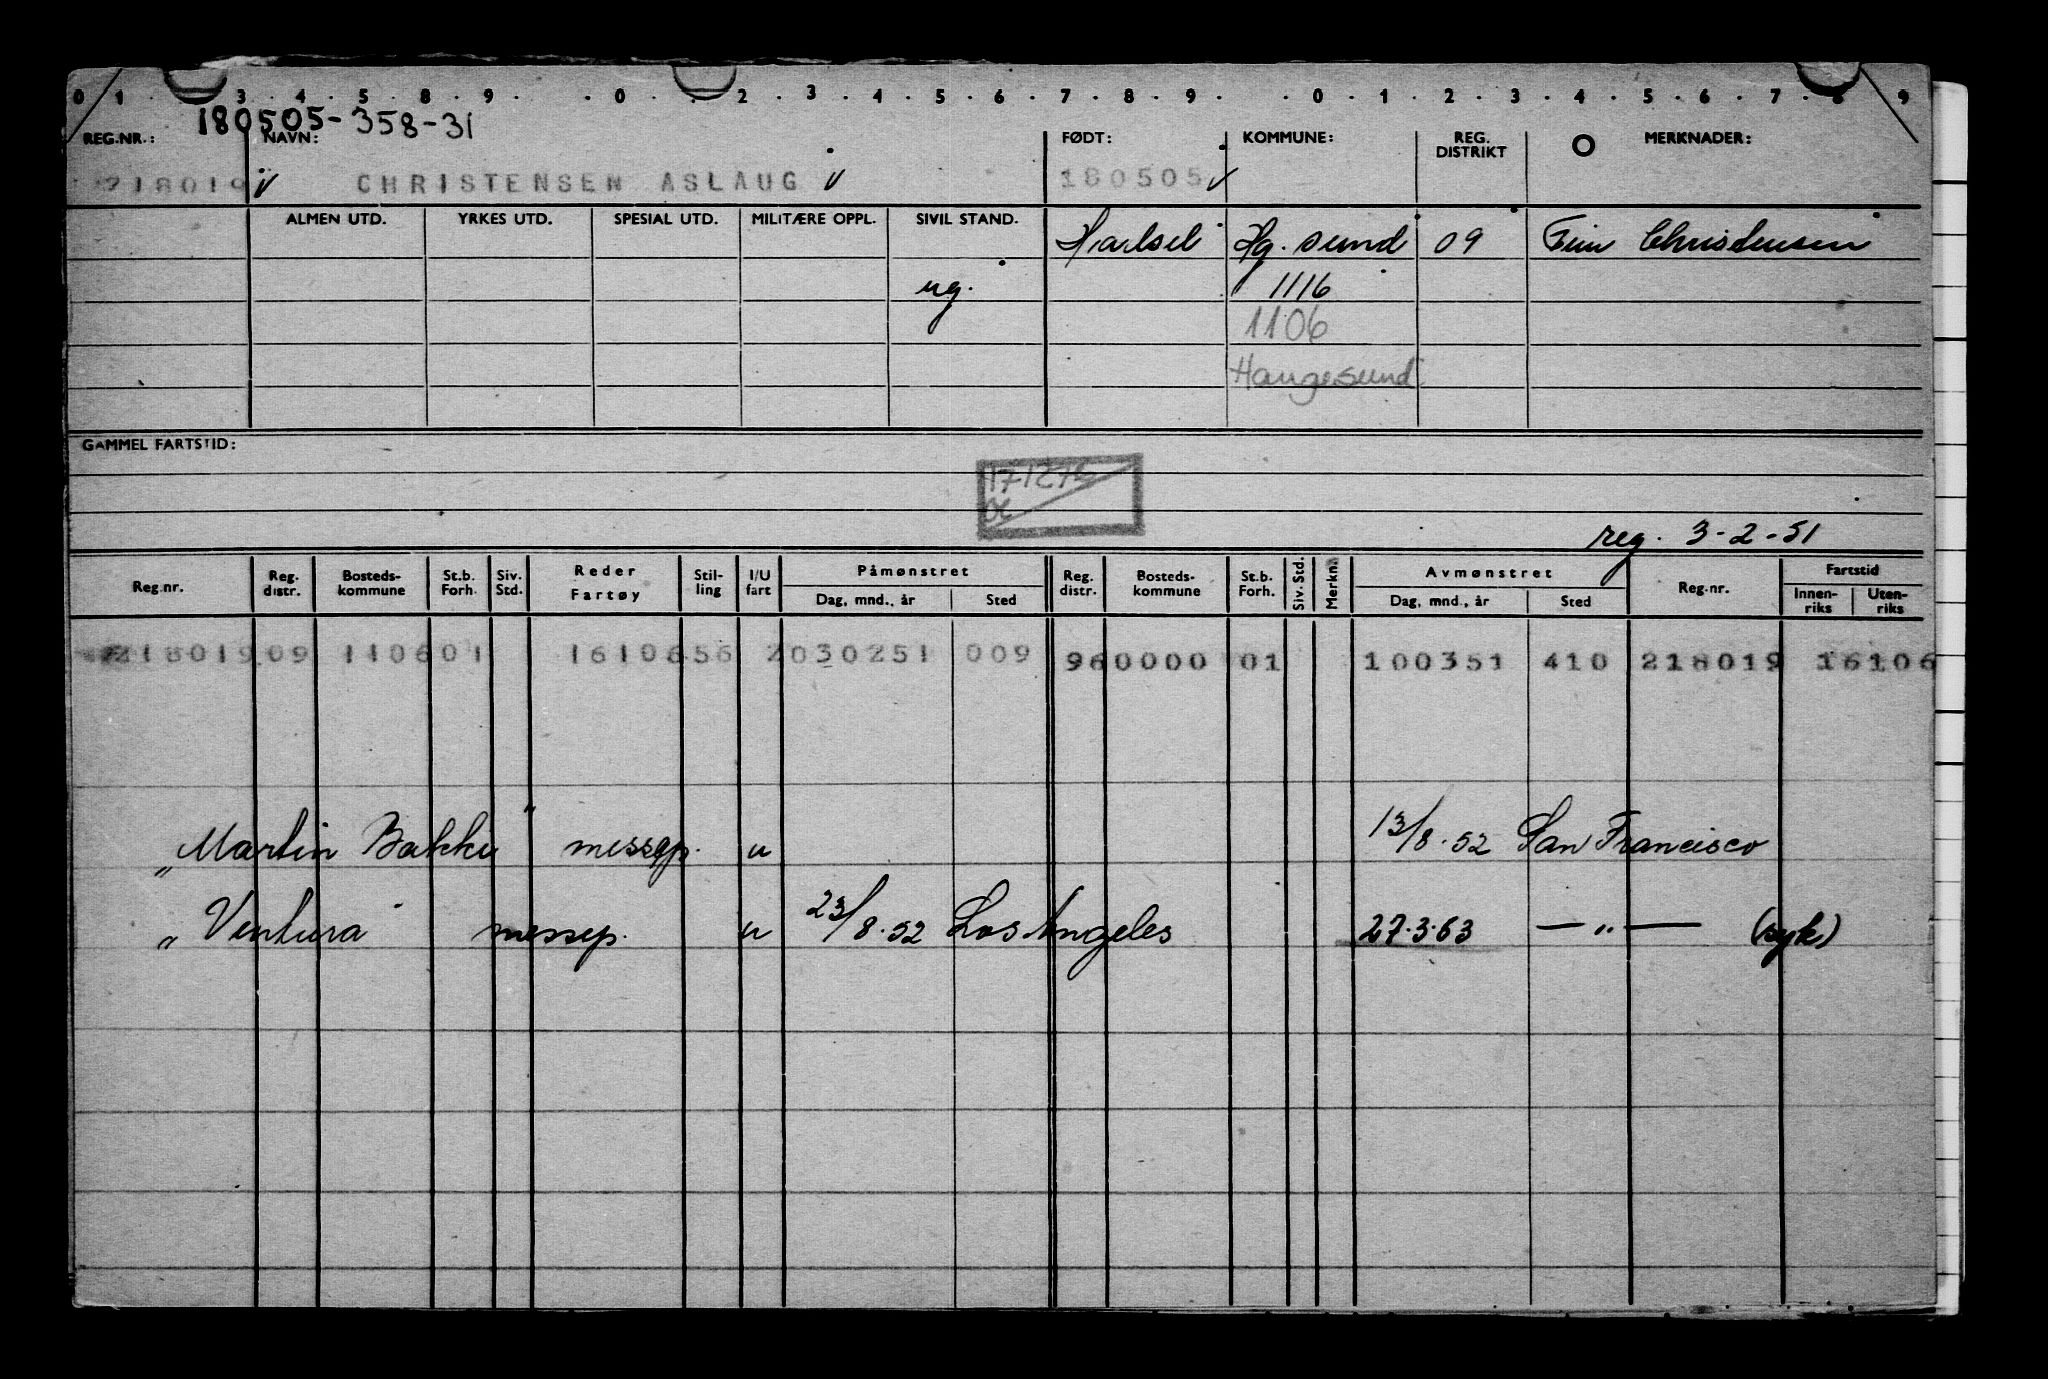 0 1 · 3 · 4 · 5 · 8 · 9 · · 0 · · 2 · 3 · 4 · 5 · 6 · 7 · 8 · 9 · · 0 · 1 · 2 · 3 · 4 · 5 · 6 · 7 · 8 · 9
180505-358-31
REG.NR.: NAVN: FØDT: KOMMUNE: REG. DISTRIKT MERKNADER:
218019 CHRISTENSEN ASLAUG 180505
ALMEN UTD. YRKES UTD. SPESIAL UTD. MILITÆRE OPPL. SIVIL STAND.
Hg. sund 09 Christensen
ug. 1116
1106
Haugesund
GAMMEL FARTSTID:
reg. 3-2-51
Reg.nr. Reg. distr. Bosteds-kommune St.b. Forh. Siv. Std. Reder Fartøy Stil-ling I/U fart Påmønstret Dag, mnd., år Sted Reg. distr. Bosteds-kommune St.b. Forh. Siv. Std. Merkn. Avmønstret Dag, mnd., år Sted Reg.nr. Fartstid Innen-riks Uten-riks
218019 09 1106 01 16106 56 2 030251 009 96 0000 01 100351 410 218019 16106
„Martin Bakke" messep. u 13/8.52 San Francisco
„Ventura" messep. u 23/8.52 Los Angeles 27.3.63 — „ — (syk)